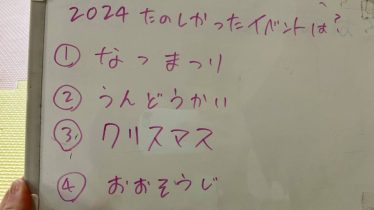 2024 たのしかったイベントは?
① なつまつり
② うんどうかい
③ クリスマス
④ おおそうじ